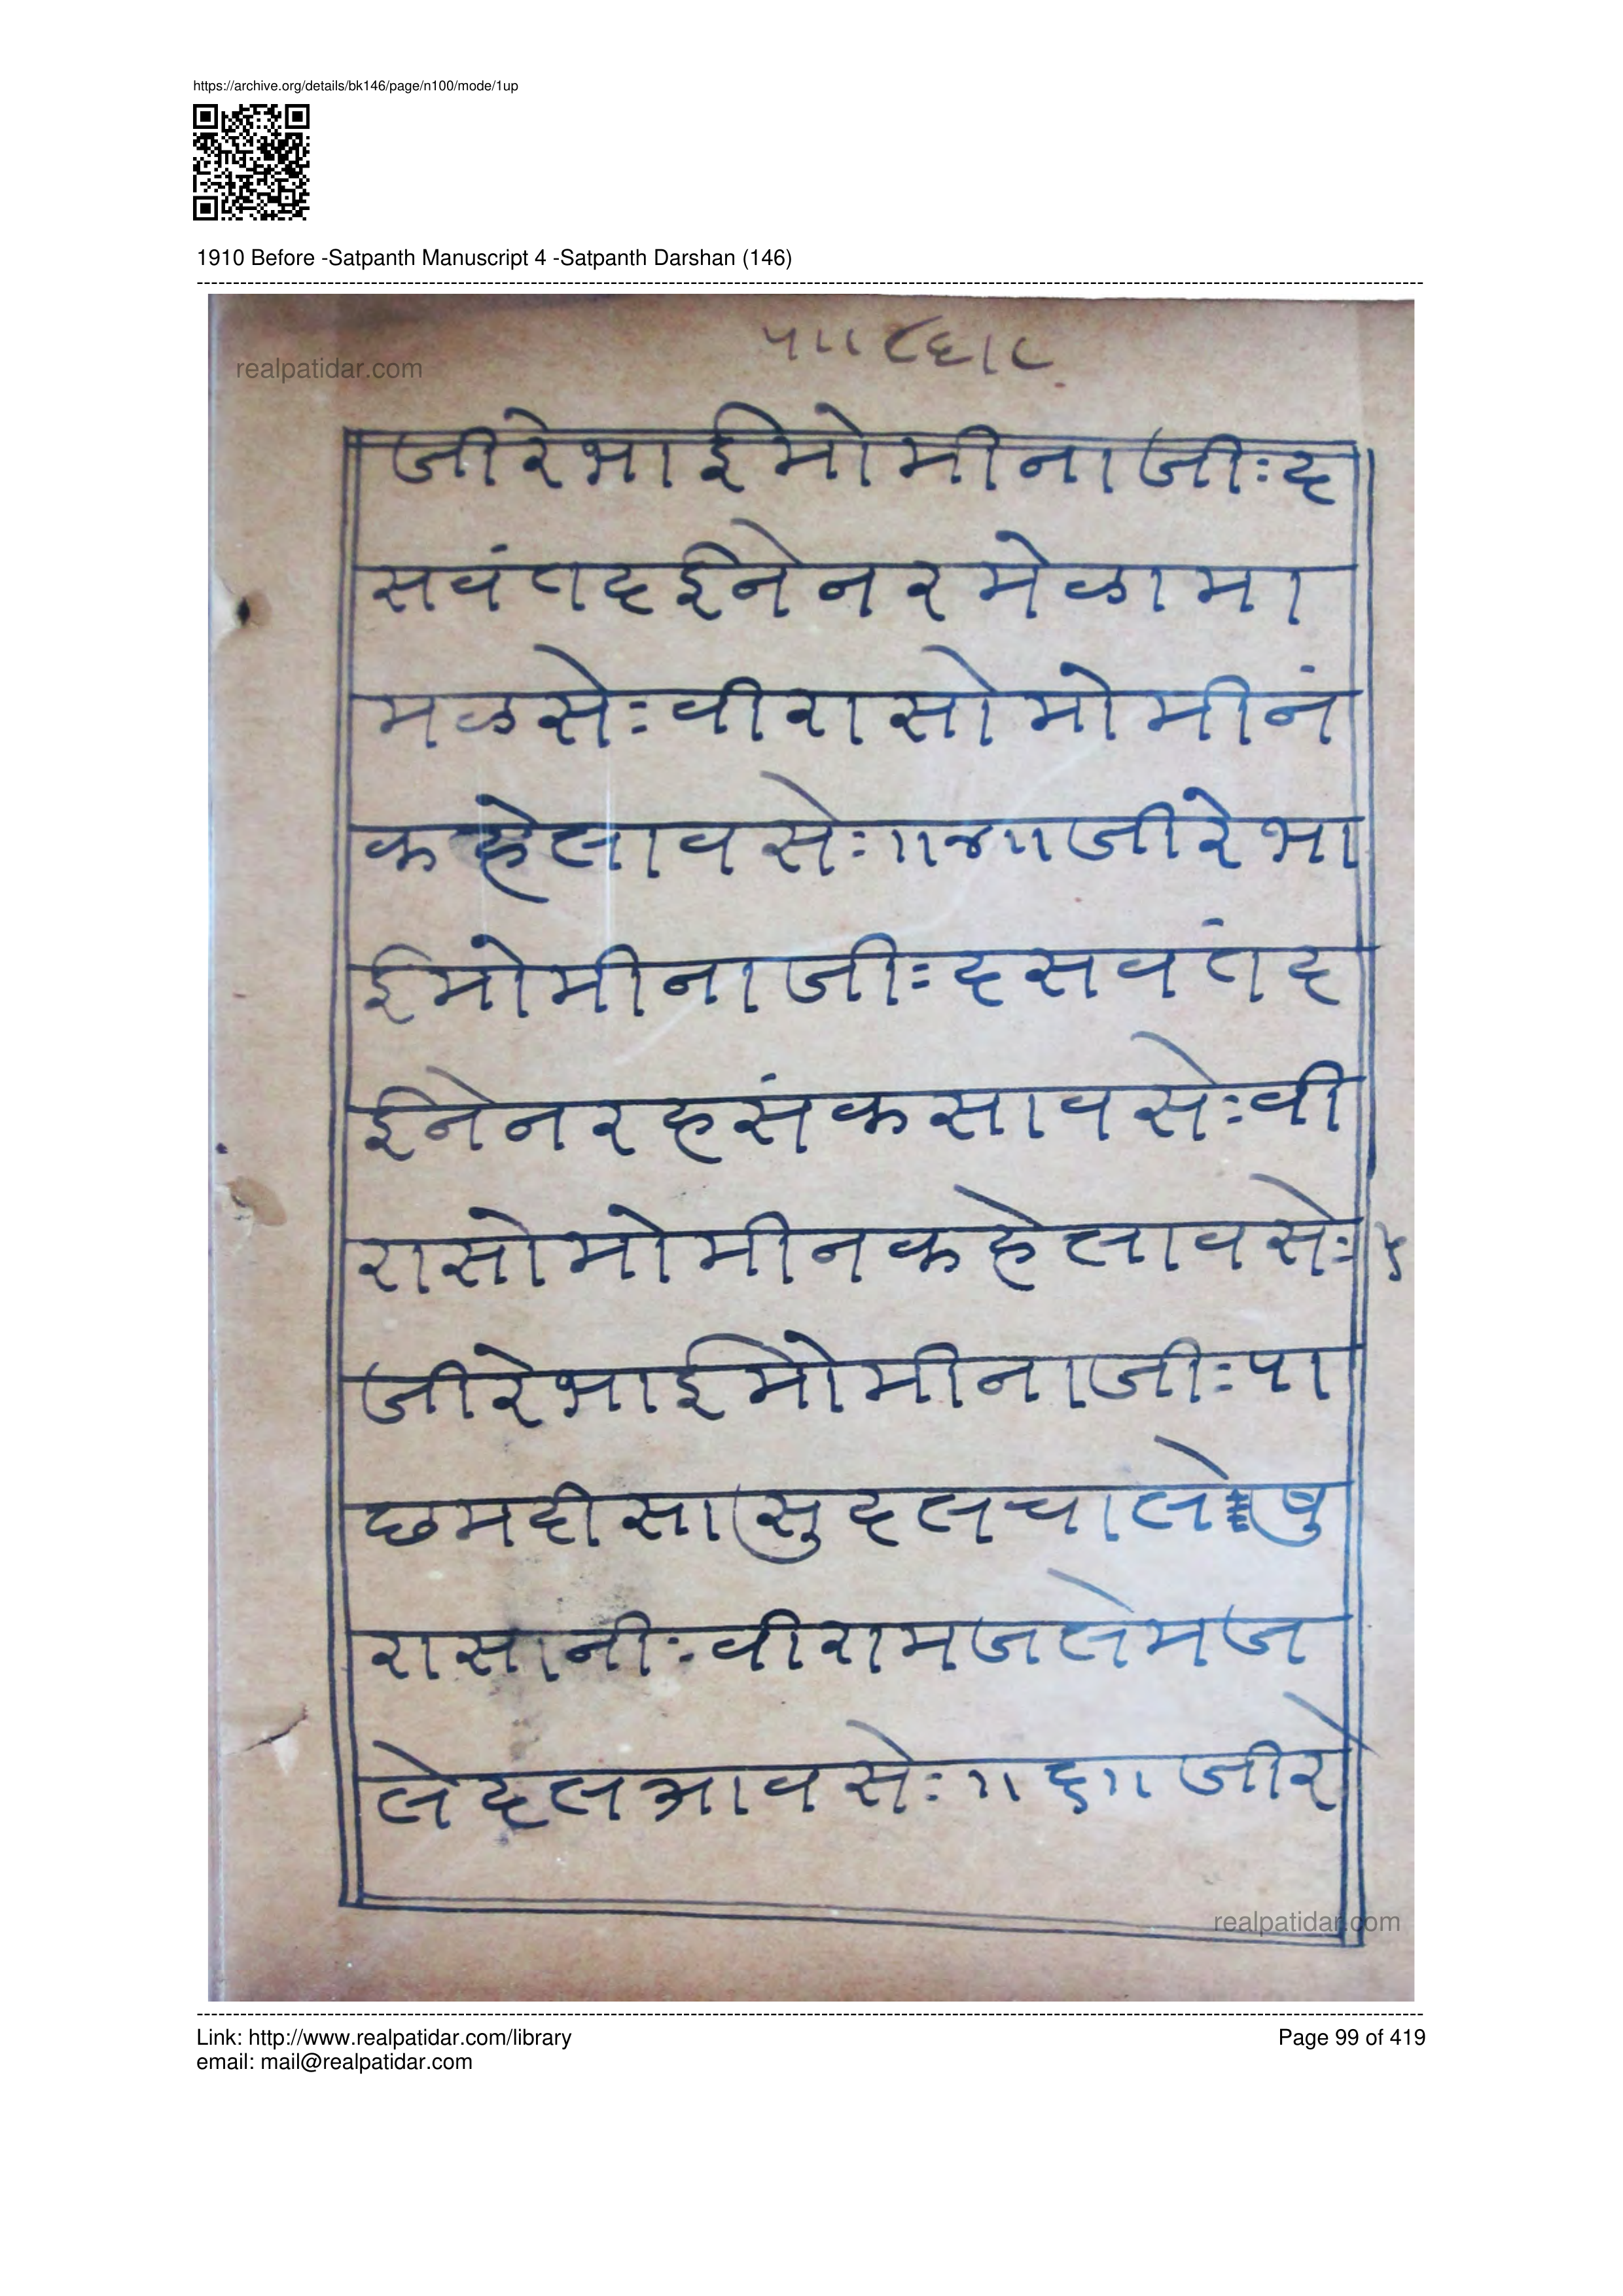 https://archive.org/details/bk146/page/n100/mode/1up
1910 Before -Satpanth Manuscript 4 -Satpanth Darshan (146)
realpatidar.com
जीरेभाईमोमीनाजीःद
सवंतदईनेनरमेळामा
मळसेःवीरासोमोमीनं
कहेलावसेः॥४॥जीरेभा
ईमोमीनाजीःदसवंतद
ईनेनरहसंकसावसेःवी
रासोमोमीनकहेलावसेः५
जीरेभाईमोमीनाजीःपा
छमदीसासुदलचालेषु
रासानीःवीरामजलेमज
लेदलआवसेः॥६॥जीरे
realpatidar.com
Link: http://www.realpatidar.com/library
Page 99 of 419
email: mail@realpatidar.com